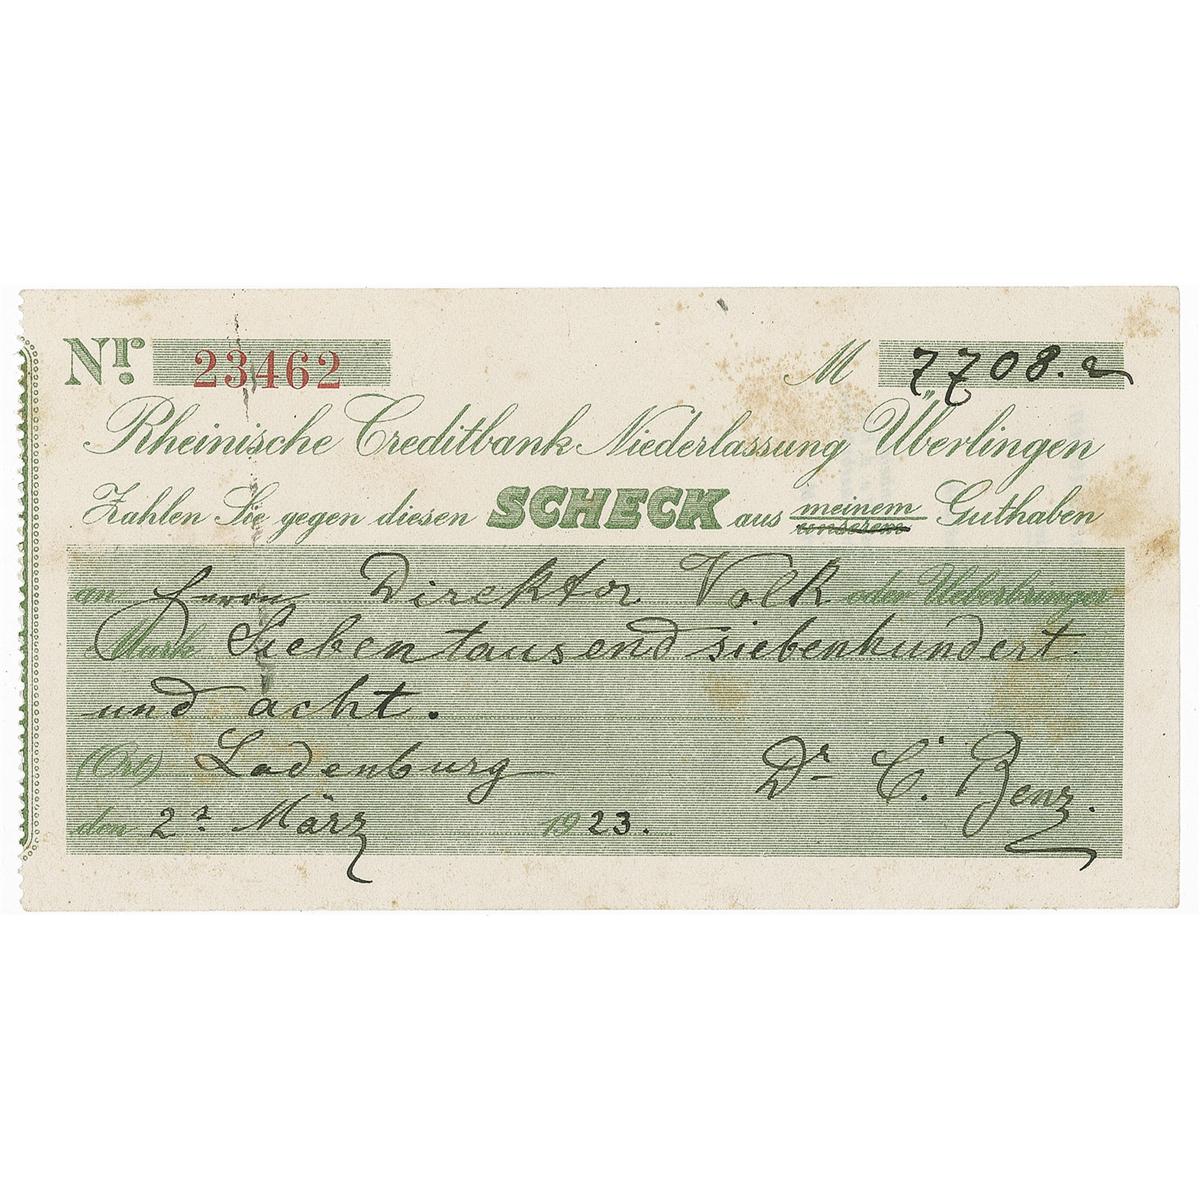 Nr. 23462 M 7708.
Rheinische Creditbank Niederlassung Überlingen
Zahlen Sie gegen diesen SCHECK aus meinem unserem Guthaben
an Herrn Direktor Volk oder Ueberbringer
Mark Siebentausend siebenhundert
und acht.
(Ort) Ladenburg Dr C. Benz.
den 2t März 1923.